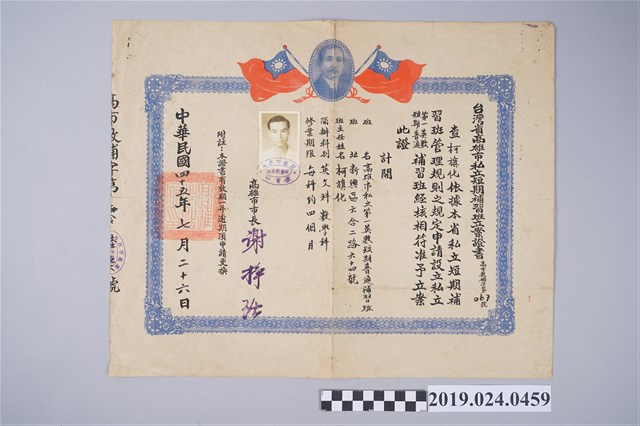 台灣省高雄市私立短期補習班立案證書
查柯旗化依據本省私立短期補
習班管理規則之規定申請設立私立
第一英數
短期普通
補習班經核相符准予立案
此證
計開
班名高雄市私立第一英數短期普通補習班
班址新興區六合二路六十四號
班主任姓名柯旗化
開辦科別英文科數學科
修業期限每科約四個月
高雄市市長
附註：本證書有效期一年逾期須申請更換
中華民國四十五年七月二十六日
2019.024.0459